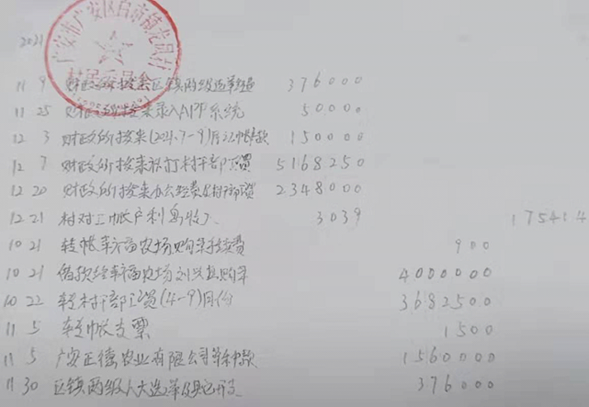 广安市广安区白市镇龙员村
村民委员会
2021
11 9 财政所拨来区镇两级选举 376000
11 25 财政所拨来录入APP系统 50000
12 3 财政所拨来(2021.7-9)月 款 150000
12 7 财政所拨来 村干部工资 5168250
12 20 财政所拨来办公经费及村干部工资 2348000
12 21 村对工帐户利息收入 3039 175414
10 21 转帐 农场购羊手续费 900
10 21 借款给 农场刘 购羊 4000000
10 22 村干部工资(4-9)月份 3682500
11 5 转帐支票 1500
11 5 广安正德农业有限公司羊种款 1560000
11 30 区镇两级人大选举 376000